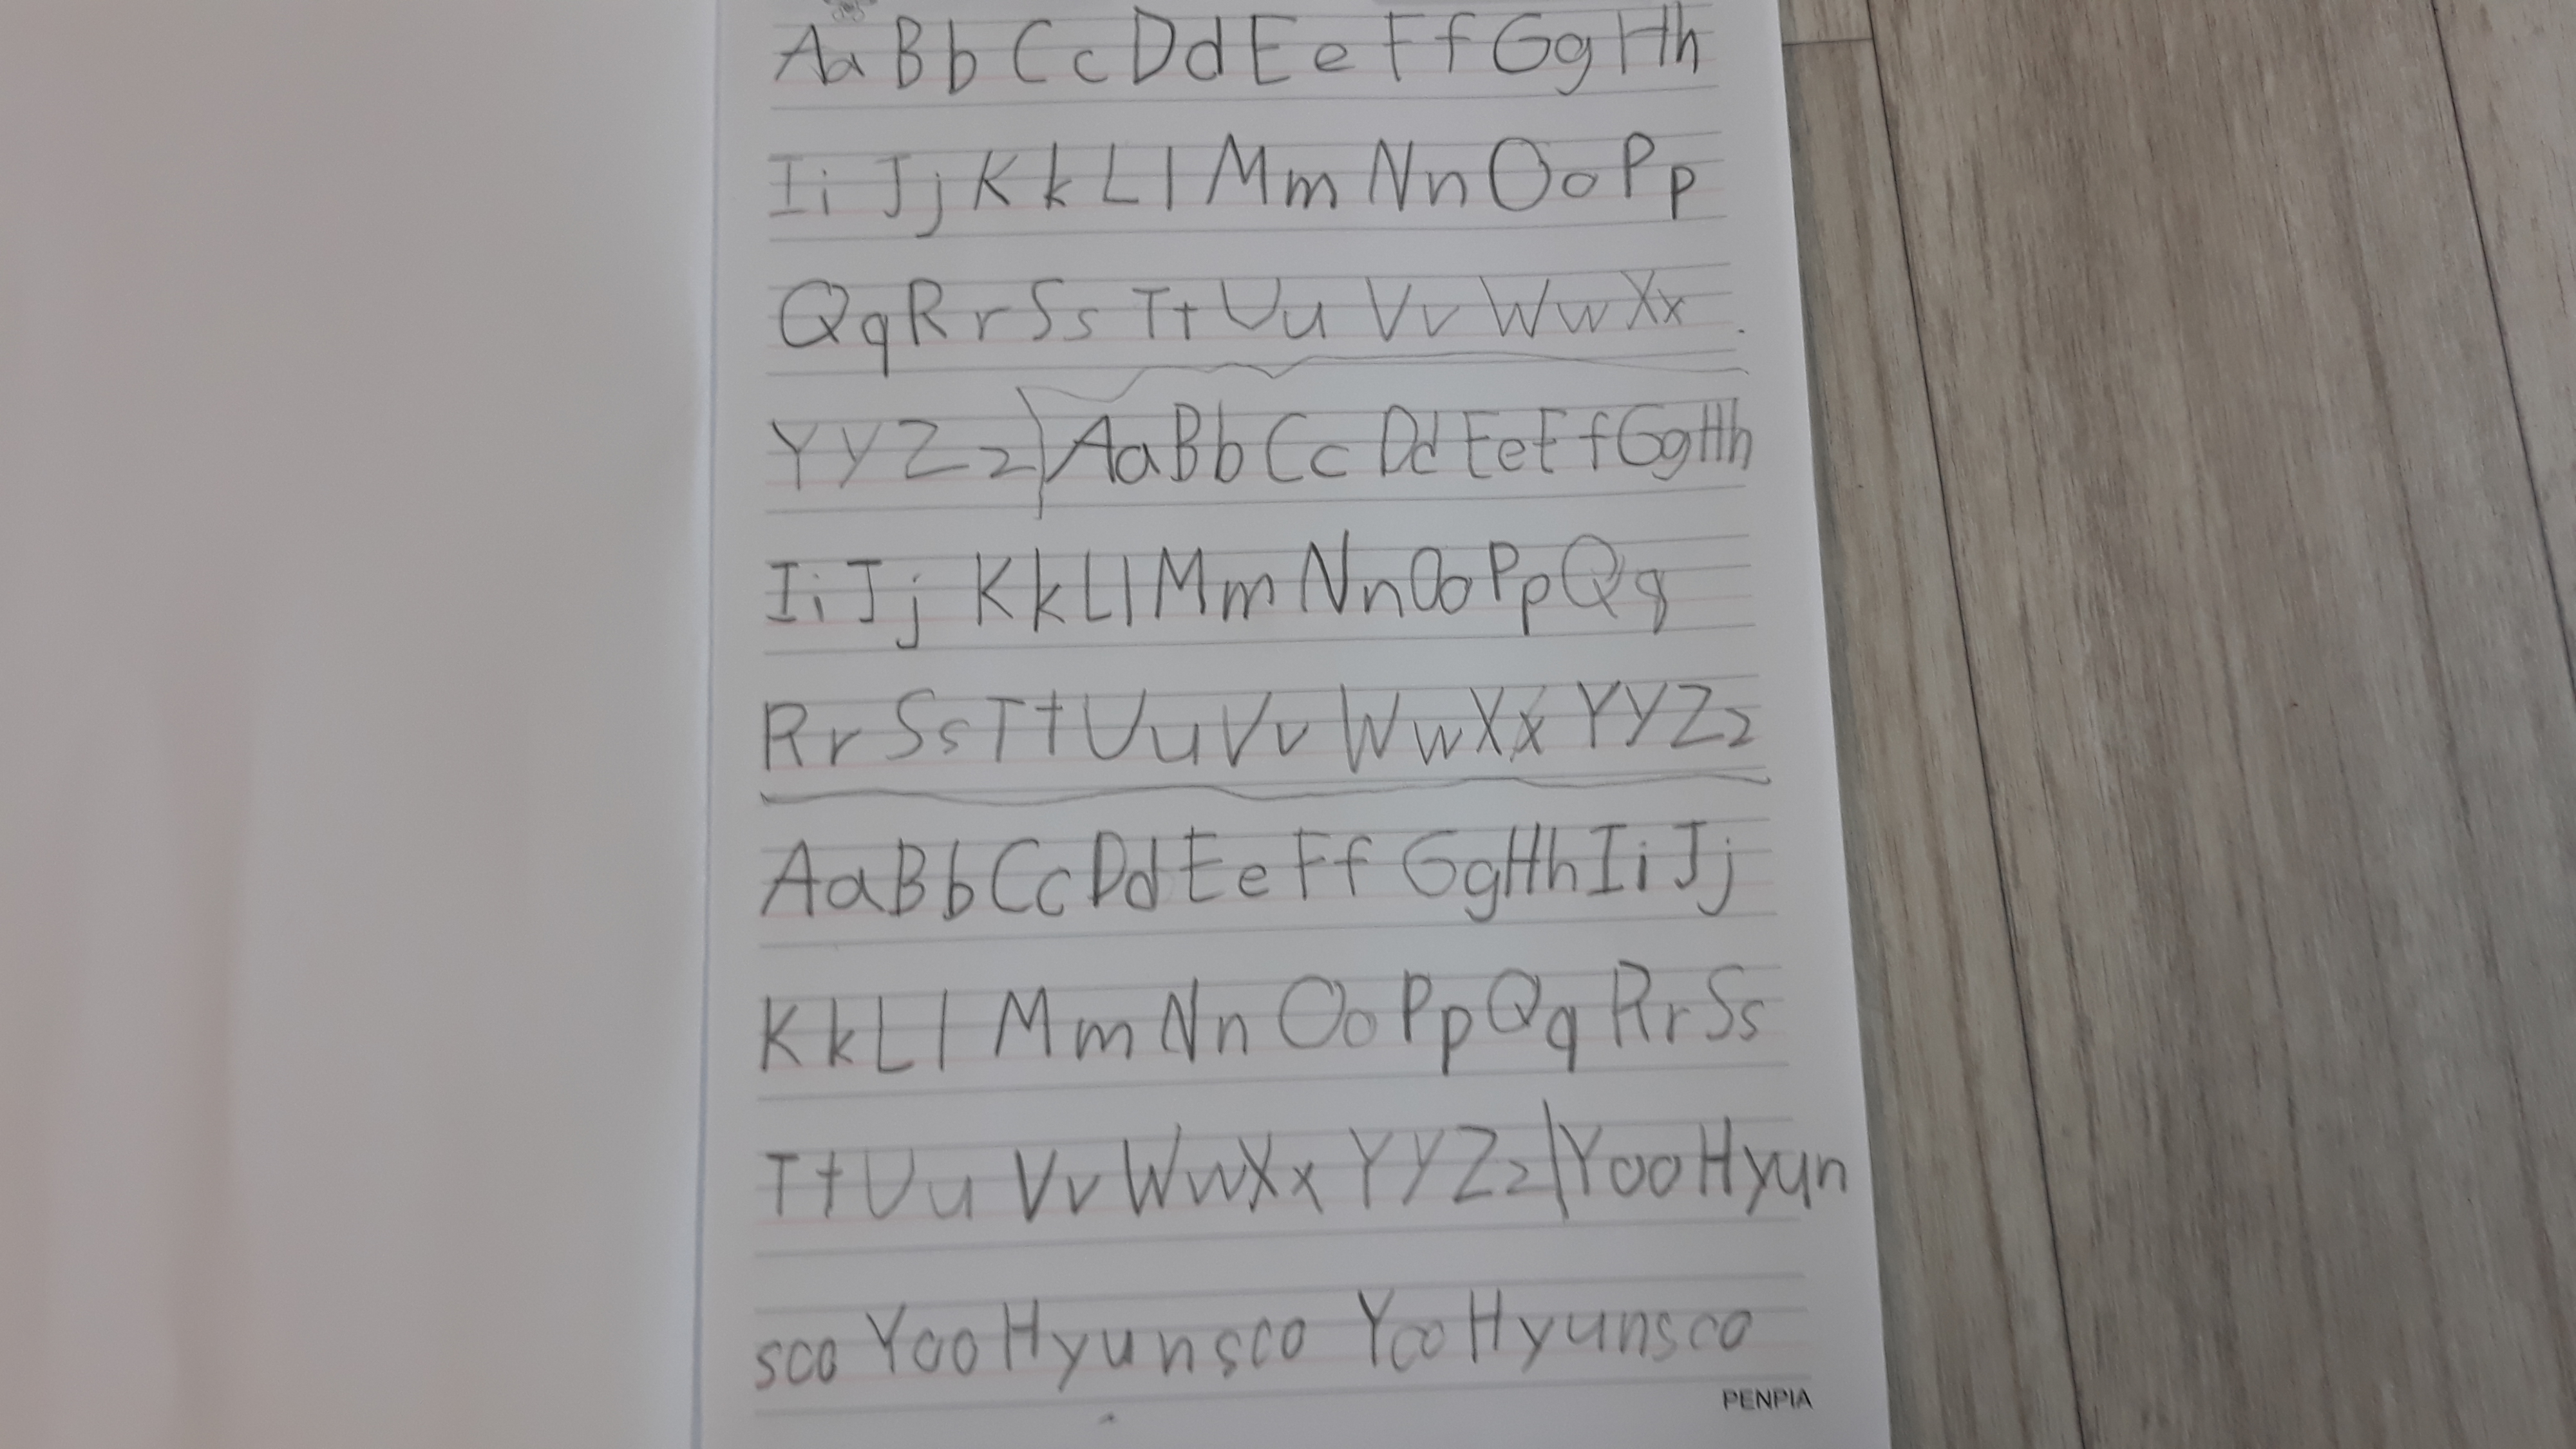 Aa Bb Cc Dd Ee Ff Gg Hh
Ii Jj Kk Ll Mm Nn Oo Pp
Qq Rr Ss Tt Uu Vv Ww Xx
Yy Zz Aa Bb Cc Dd Ee Ff Gg Hh
Ii Jj Kk Ll Mm Nn Oo Pp Qq
Rr Ss Tt Uu Vv Ww Xx Yy Zz
Aa Bb Cc Dd Ee Ff Gg Hh Ii Jj
Kk Ll Mm Nn Oo Pp Qq Rr Ss
Tt Uu Vv Ww Xx Yy Zz Yoo Hyun
soo Yoo Hyunsoo Yoo Hyunsoo
PENPIA